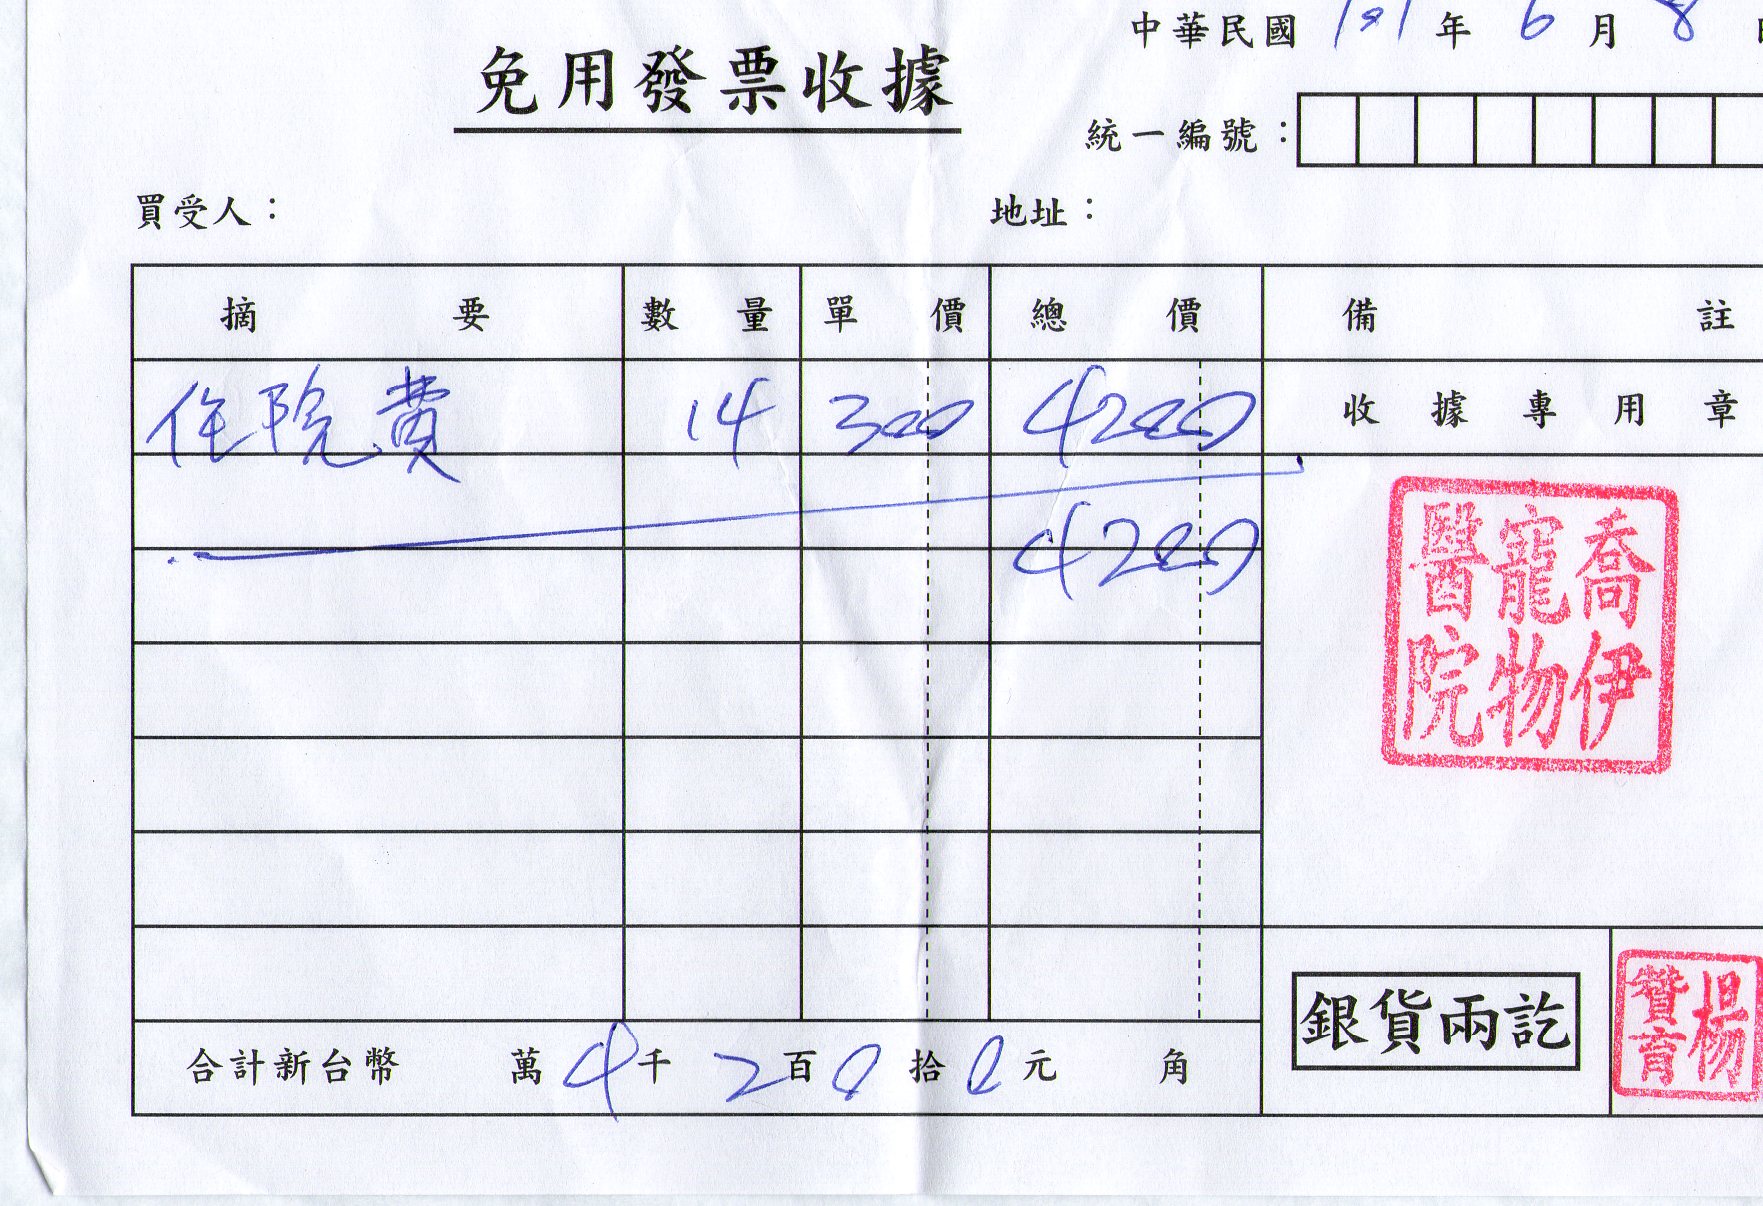 中華民國 101 年 6 月 8 日
免用發票收據
統一編號：
買受人： 地址：
摘要 數量 單價 總價 備註
住院費 14 300 4200 收據專用章
4200
喬伊
寵物
醫院
合計新台幣 萬 4 千 2 百 0 拾 0 元 角
銀貨兩訖
楊
贊育